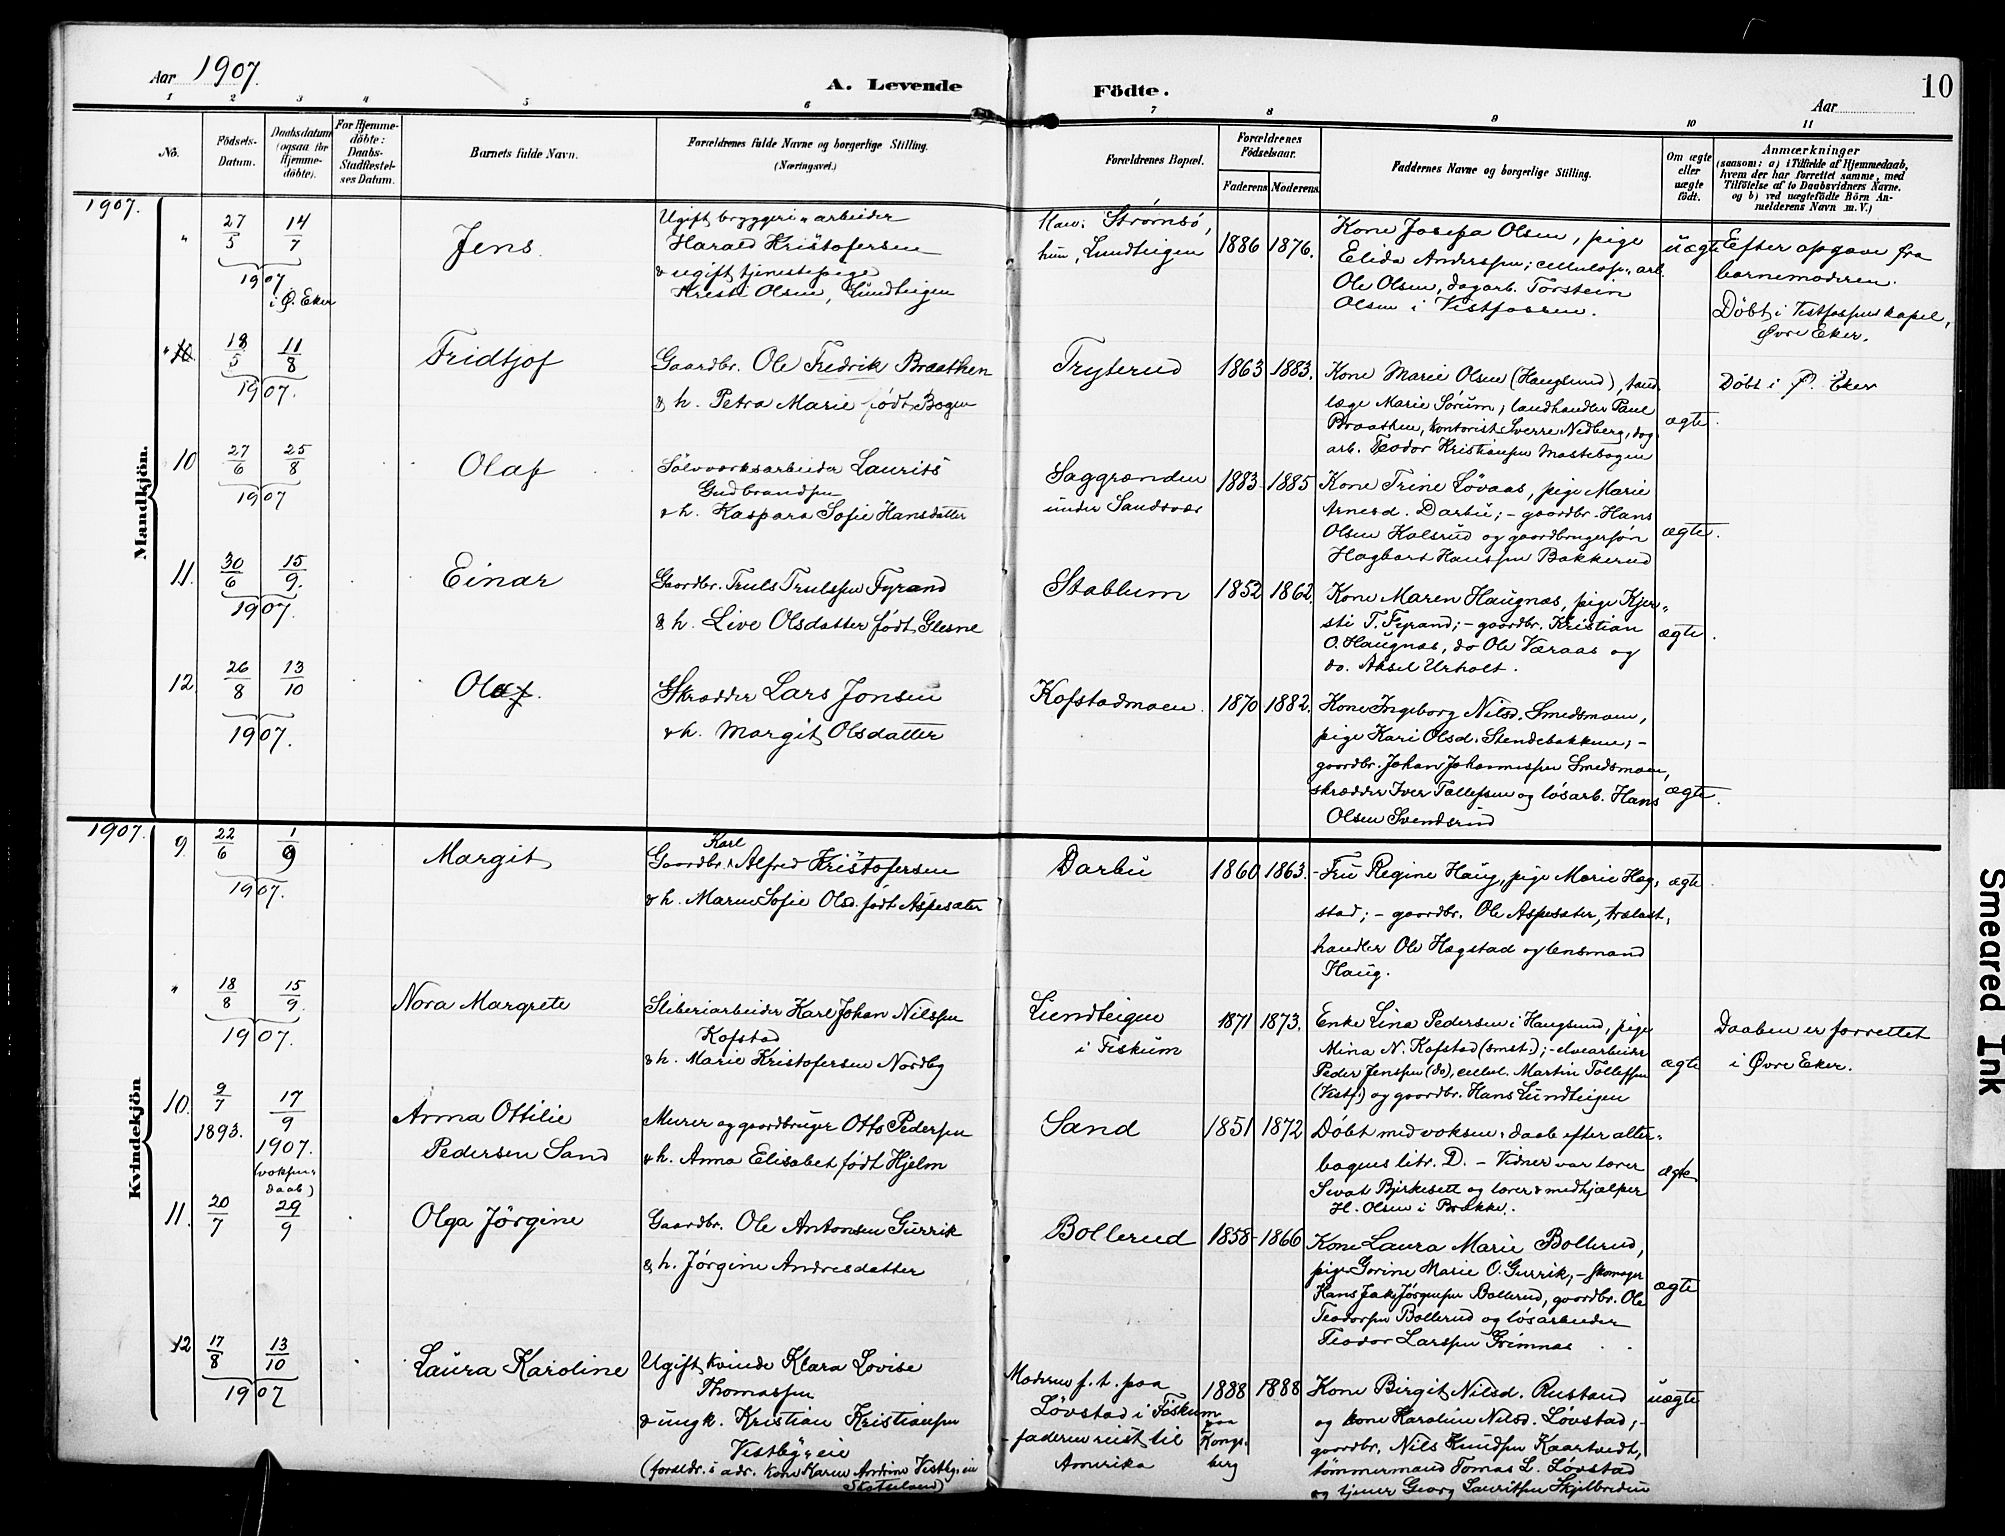 Aar 1907.
A. Levende Födte.
Aar
10
1 2 3 4 5 6 7 8 9 10 11
No.
Födsels-Datum.
Daabsdatum (ogsaa for Hjemme-döbte).
For Hjemme-döbte: Daabs-Stadfæstel-ses Datum.
Barnets fulde Navn.
Forældrenes fulde Navne og borgerlige Stilling. (Næringsvei.)
Forældrenes Bopæl.
Forældrenes Födselsaar.
Faderens Moderens.
Faddernes Navne og borgerlige Stilling.
Om ægte eller uægte födt.
Anmærkninger
(saasom: a) i Tilfælde af Hjemmedaab, hvem der har forrettet samme, med Tilföielse af to Daabsvidners Navne. og b) ved uægtefödte Börn Anmelderens Navn m. V.)
Mandkjön.
1907.
" 27/5 14/7 1907 i Ø. Eker
Jens.
Ugift bryggeri-arbeider
Harald Kristofersen
& ugift tjenestepige
Olsen, Lundteigen
Strømsö,
hun, Lundteigen
1886 1876.
Kone Josefa Olsen, pige
Elida Anderssen; cellulose-arb.
Ole Olsen, dagarb. Torstein
Olsen i Vestfossen.
uægte
Efter opgave fra
barnemoderen.
Döbt i Vestfossen kapel,
Øvre Eker.
18/5 11/8 1907.
Fridtjof
Gaardbr. Ole Fredrik Braathen
& h. Petra Marie født Bogen
Tryterud
1863 1883.
Kone Marie Olsen (Hauglund), tand-
læge Marie Sørum; landhandler Paul
Braathen, kontorist Sverre Nedberg, dag-
arb. Teodor Kristiansen Mastebogen
ægte.
Döbt i Ø. Eker
10 27/6 25/8 1907
Olaf
Sølvværksarbeider Laurits
Gudbrandsen
& h. Kaspara Sofie Hansdatter
Saggrænden
under Sandsvær
1883 1885
Kone Trine Løvaas, pige Marie
Arnesd. Darbu; - gaardbr. Hans
Olsen Kolsrud og gaardbrugersøn
Hagbart Hanssen Bakkerud
ægte.
11. 30/6 15/9. 1907.
Einar
Gaardbr. Truls Trulssen Fyrand
& h. Live Olsdatter født Glesne
Stablum
1852 1862.
Kone Maren Haugnæs, pige Kjer-
sti T. Fyrand; - gaardbr. Kristian
O. Haugnæs, do Ole Væraas og
do. Aksel Urholt.
ægte.
12. 26/8 13/10 1907.
Olaf.
Skrædder Lars Jonsen
& h. Margit Olsdatter
Kofstadmoen.
1870 1882.
Kone Ingeborg Nilsd. Smedsmoen,
pige Kari Olsd. Stendebakken; -
gaardbr. Johan Johannessen Smedsmoen,
skrædder Iver Tollefsen og løsarb. Hans
Olsen Svendsrud
ægte.
Kvindekjön
1907.
9. 22/6 1/9 1907.
Margit
Karl
Gaardbr. Alfred Kristofersen
& h. Maren Sofie Olsd. født Aspesæter
Darbu
1860 1863.
- Fru Regine Haug, pige Marie Hæg-
stad; - gaardbr. Ole Aspesæter, trælast-
handler Ole Hægstad og lensmand
Haug.
ægte.
" 18/8 15/9. 1907.
Nora Margrete
Sliberiarbeider Karl Johan Nilssen
Kofstad
& h. Marie Kristofersen Nordby
Lundteigen
i Fiskum
1871 1873.
Enke Lina Pedersen i Hauglund, pige
Mina N. Kofstad (smst.); - elvearbeider
Peder Jenssen (do), cellul. Martin Tollefsen
(Vestf.) og gaardbr. Hans Lundteigen
ægte
Daaben er forrettet
i Øvre Eker.
10. 9/7 1893. 17/9 1907. (voksen-daab)
Anna Ottilie
Pedersen Sand
Murer og gaardbruger Otto Pedersen
& h. Anna Elisabet født Hjelm
Sand
1851 1872
Døbt med voksen-daab efter alter-
bogens litr. D. - Vidner var lærer
Sevat Bjirkesett og lærer & medhjælper
H. Olsen i Brække.
ægte
11. 20/7 29/9
Olga Jørgine
Gaardbr. Ole Antonsen Gurrik
& h. Jørgine Andresdatter
Bollerud
1858- 1866
Kone Laura Marie Bollerud,
pige Gorine Marie O. Gurrik, - skomager
Hans Jak. Jørgensen Bollerud, gaardbr. Ole
Teodorsen Bollerud og løsarbeider
Teodor Larssen Grimnæs
ægte
12 17/8 13/10 1907
Laura Karoline
Ugift kvinde Klara Lovise
Thomassen
& ungk. Kristian Kristiansen
Vestby-eie
(forældr.s adr. kone Karen Andrine Vestby-eie
Skotselven)
Moderen f. t. paa
Løvstad i Fiskum
- faderen reist til
Amerika
1888 paa Kongsberg
1888
Kone Birgit Nilsd. Rustand
og kone Karoline Nilsd. Løvstad, -
gaardbr. Nils Knudsen Kaartvedt,
tømmermand Tomas L. Løvstad
og tjener Georg Lauritsen Skjelbreden
uægte
Smeared Ink